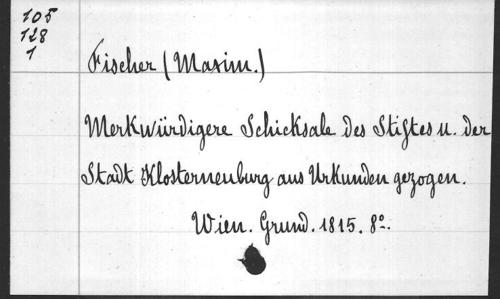 105
128
1
Fischer (Maxim.)
Merkwürdigere Schicksale des Stiftes u. der
Stadt Klosterneuburg aus Urkunden gezogen.
Wien. Grund. 1815. 8o.